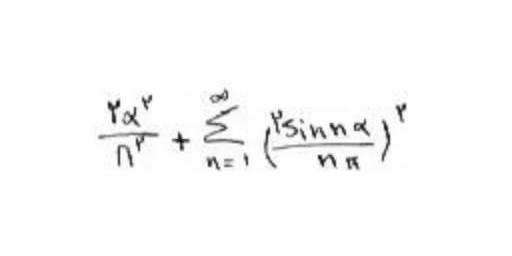 \frac{۲α^۲}{n^۲} + \sum_{n=۱}^{∞} \left( \frac{۲ \sin nα}{nπ} \right)^۲